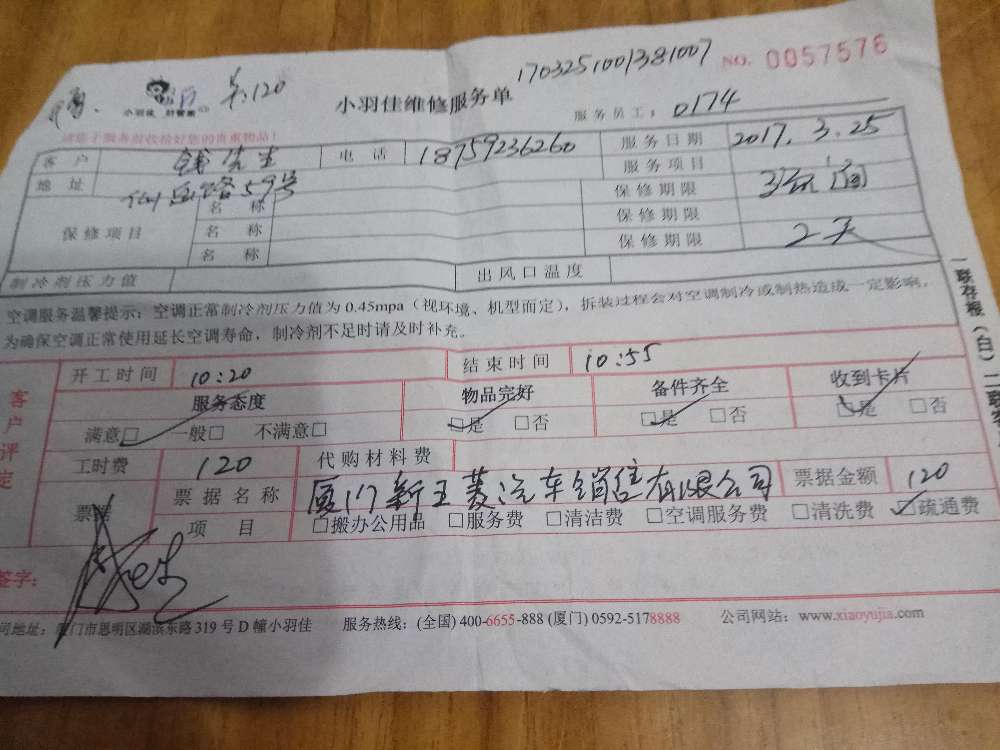 1703251001381007 NO. 0057576
小羽佳 120
小羽佳维修服务单 服务员工：0174
请您于服务前收拾好您的贵重物品！
客户 钱先生 电话 18759236260 服务日期 2017.3.25
地址 仙岳路59号 服务项目 疏通
保修项目 名称 保修期限
名称 保修期限
名称 保修期限 2天
制冷剂压力值 出风口温度
空调服务温馨提示：空调正常制冷剂压力值为 0.45mpa（视环境、机型而定），拆装过程会对空调制冷或制热造成一定影响，
为确保空调正常使用延长空调寿命，制冷剂不足时请及时补充。
一联存根（白）二联客
客户评定
开工时间 10:20 结束时间 10:55
服务态度 物品完好 备件齐全 收到卡片
满意☑ 一般□ 不满意□ ☑是 □否 ☑是 □否 ☑是 □否
工时费 120 代购材料费
票据 票据名称 厦门新王菱汽车销售有限公司 票据金额 120
项目 □搬办公用品 □服务费 □清洁费 □空调服务费 □清洗费 ☑疏通费
签字：
司地址：厦门市思明区湖滨东路 319 号 D 幢小羽佳 服务热线：(全国) 400-6655-888 (厦门) 0592-5178888 公司网站：www.xiaoyujia.com